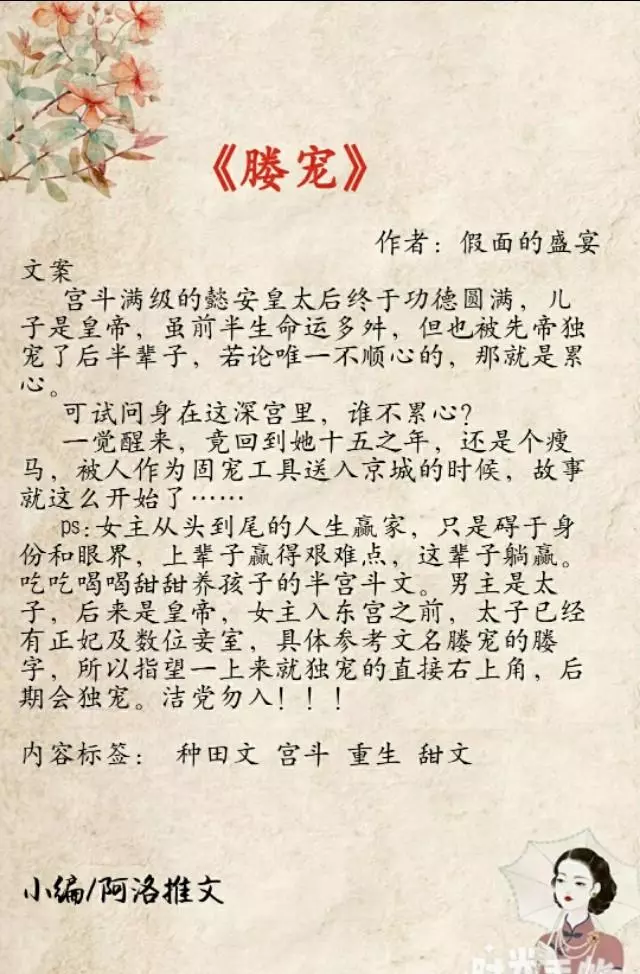 《媵宠》
作者：假面的盛宴
文案
宫斗满级的懿安皇太后终于功德圆满，儿
子是皇帝，虽前半生命运多舛，但也被先帝独
宠了后半辈子，若论唯一不顺心的，那就是累
心。
可试问身在这深宫里，谁不累心？
一觉醒来，竟回到她十五之年，还是个瘦
马，被人作为固宠工具送入京城的时候，故事
就这么开始了……
ps:女主从头到尾的人生赢家，只是碍于身
份和眼界，上辈子赢得艰难点，这辈子躺赢。
吃吃喝喝甜甜养孩子的半宫斗文。男主是太
子，后来是皇帝，女主入东宫之前，太子已经
有正妃及数位妾室，具体参考文名媵宠的媵
字，所以指望一上来就独宠的直接右上角，后
期会独宠。洁党勿入！！！
内容标签： 种田文 宫斗 重生 甜文
小编/阿洛推文